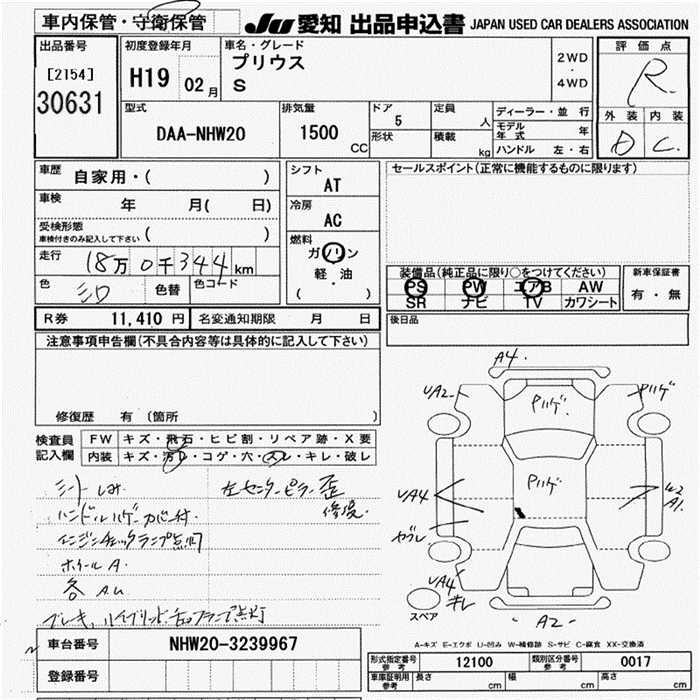 車内保管・守衛保管
JU 愛知 出品申込書 JAPAN USED CAR DEALERS ASSOCIATION
出品番号
[2154]
30631
初度登録年月
H19 02月
車名・グレード
プリウス
S
2WD
・
4WD
評価点
R
外装 内装
D C
型式
DAA-NHW20
排気量
1500 CC
ドア 5
形状
定員 人
積載 kg
ディーラー・並行
モデル年式 年
ハンドル 左・右
車歴 自家用・( )
車検 年 月( 日)
受検形態
車検付きのみ記入して下さい ( )
走行 18万0千344km
色 シロ 色替 色コード
シフト
AT
冷房
AC
燃料
ガソリン
軽・油
( )
セールスポイント(正常に機能するものに限ります)
装備品(純正品に限り○をつけてください)
PS PW エアB AW
SR ナビ TV カワシート
新車保証書
有・無
R券 11,410 円 名変通知期限 月 日
後日品
注意事項申告欄(不具合内容等は具体的に記入して下さい)
修復歴 有 (箇所 )
検査員記入欄
FW キズ・飛石・ヒビ割・リペア跡・X要
内装 キズ・汚レ・コゲ・穴・スレ・キレ・破レ
シートしみ
左センターピラー歪
修復.
ハンドルハゲ カバー付.
エンジンチェックランプ点灯
ホイールA.
各AU
A4
UA2
ハゲ
ハゲ.
ハゲ
UA4
W2
A1.
UA4
キレ
スペア
A2
A-キズ E-エクボ U-凹み W-補修跡 S-サビ C-腐食 XX-交換済
車台番号 NHW20-3239967
登録番号
形式指定番号 参考 12100 類別区分番号 参考 0017
車庫証明用 参考 長さ cm 幅 cm 高さ cm